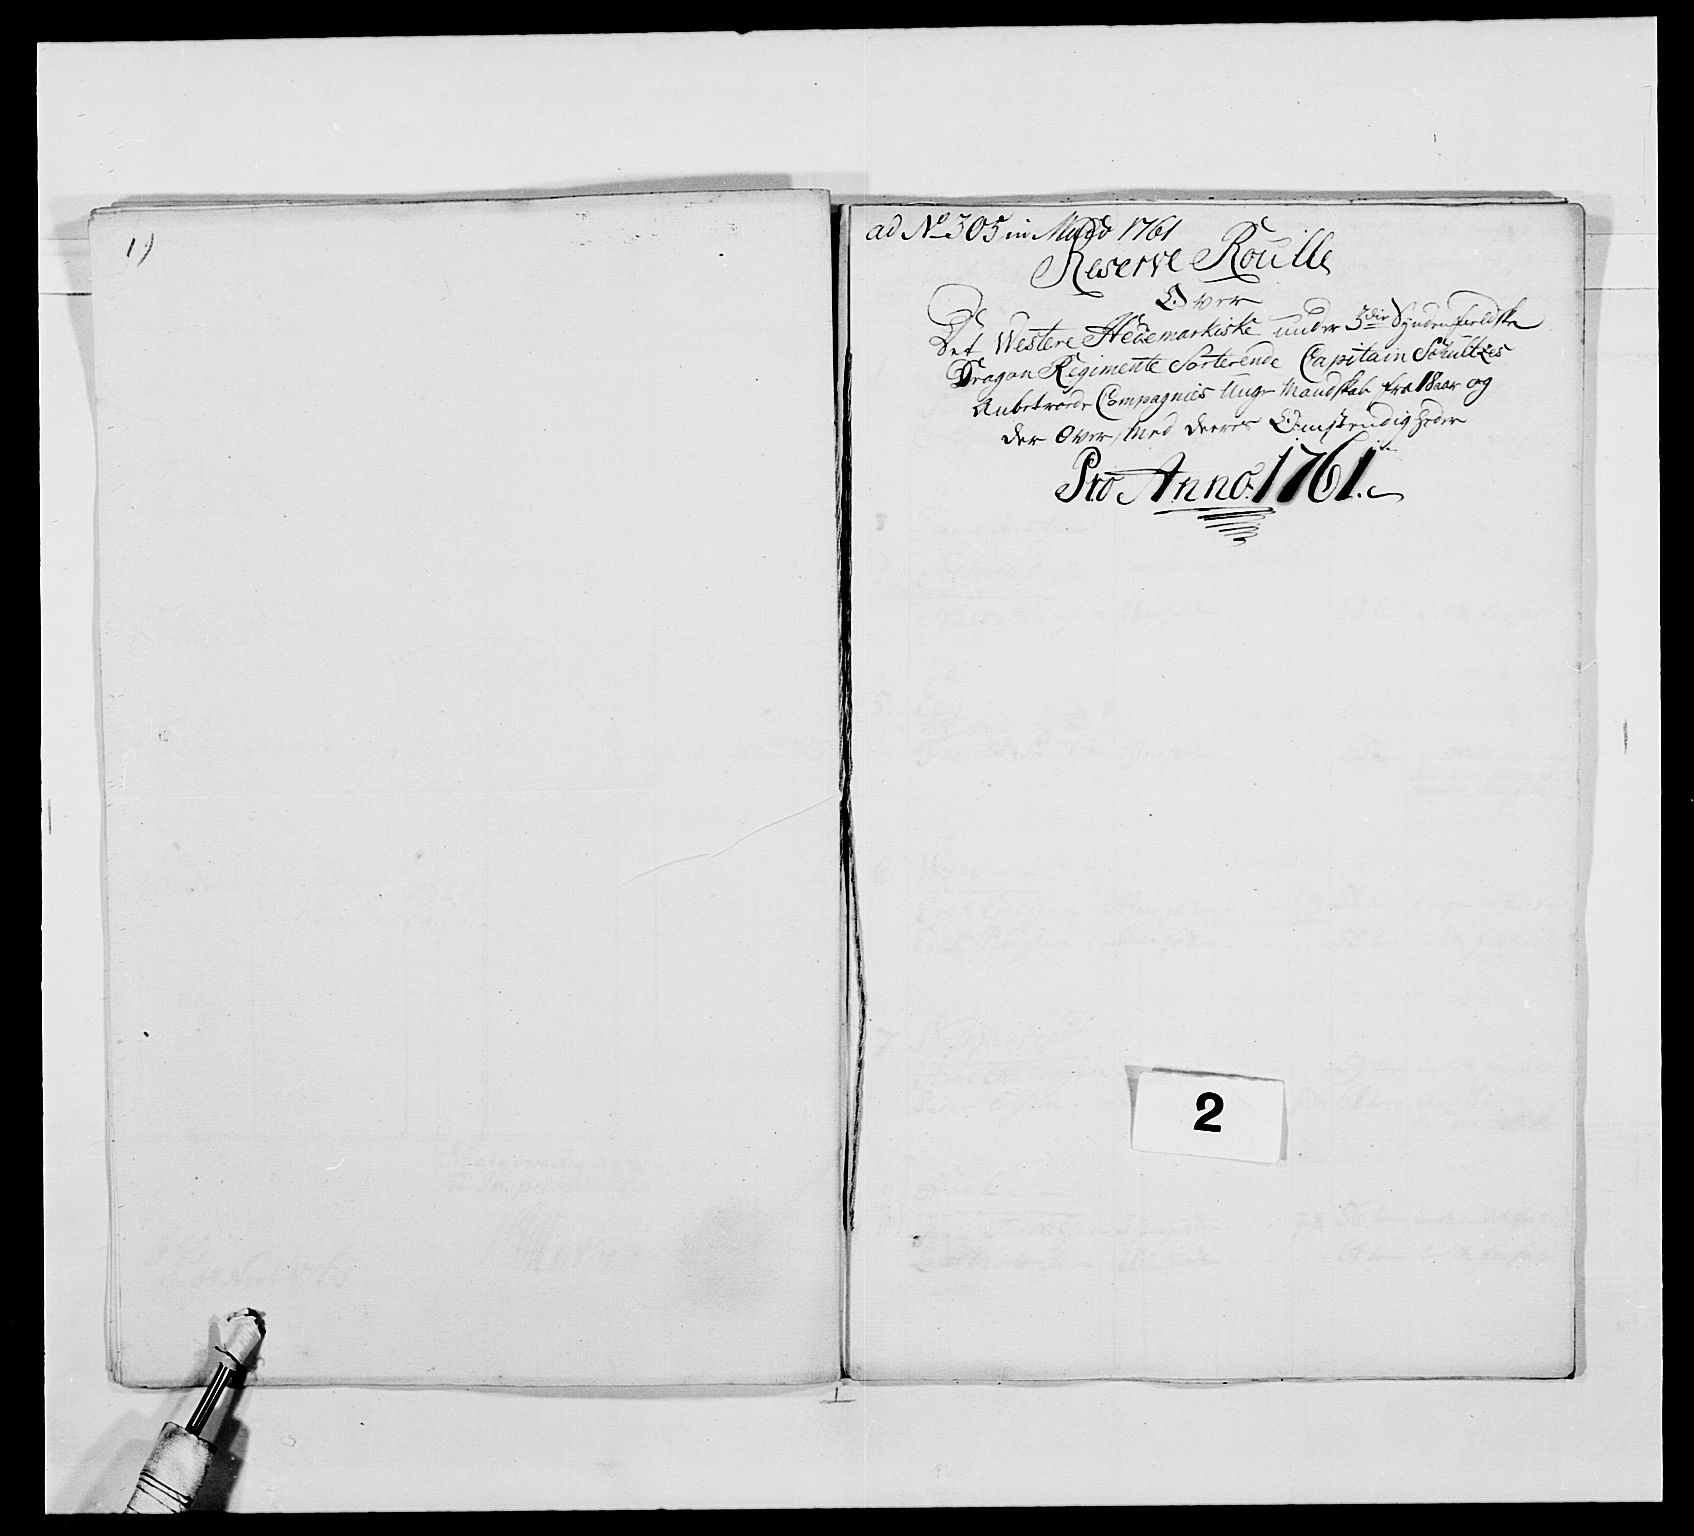 1)
ad No 305 in Mujo 1761
Reserve Roulle
Over
Det Westere Hedemarkiske under 3die Syndenfieldske
Dragon Regimente Sorterende Capitain Schultzes
Anbetroede Compagnies Unge Mandskab fra 18 aar og
der Over, Med deeres Omstendigheder
Pro Anno 1761.
2